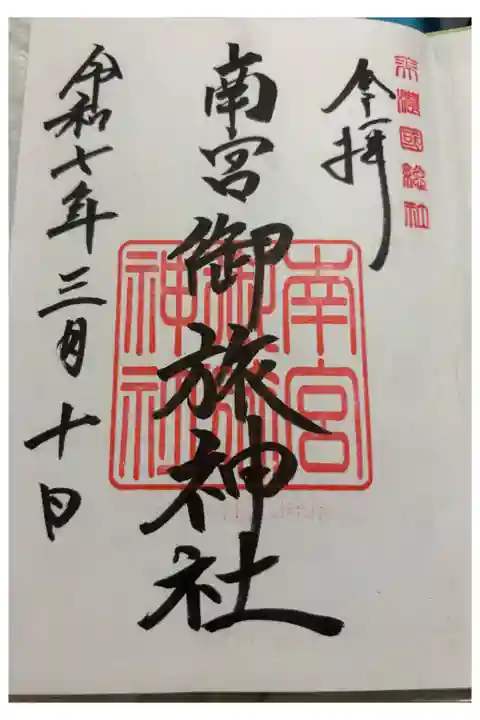 美濃國総社
奉拝
南宮御旅神社
南宮御旅神社
令和七年三月十日